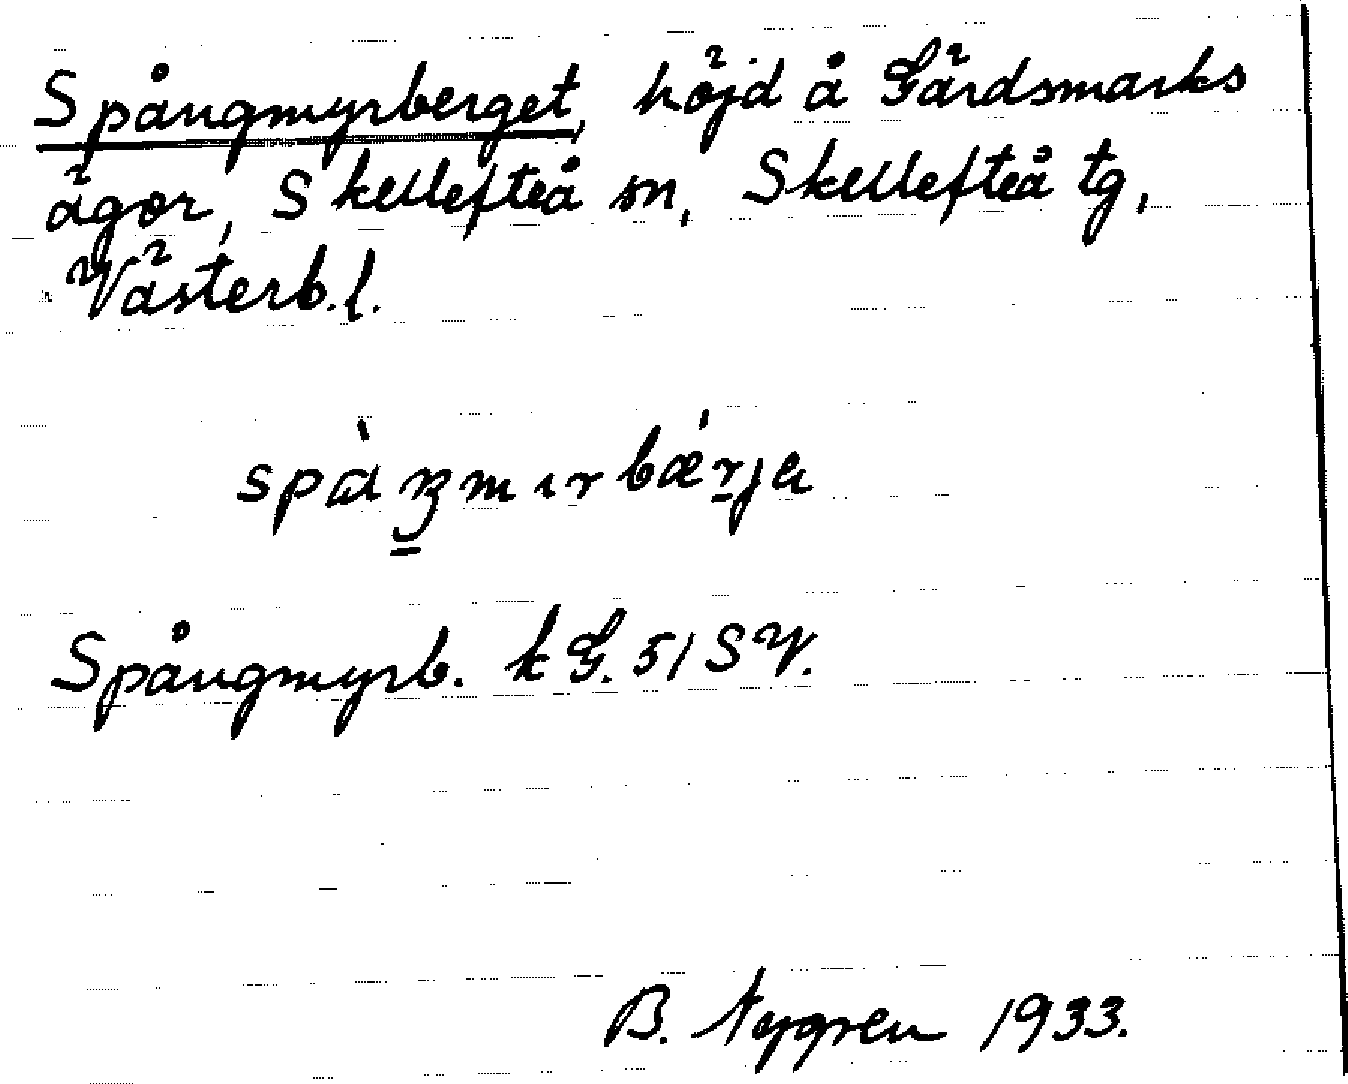 Spångmyrberget, höjd å Gärdsmarks
ägor, Skellefteå sn, Skellefteå tg,
Västerb. l.
Spångmyrb. kG. 51 SV.
B. Nygren 1933.